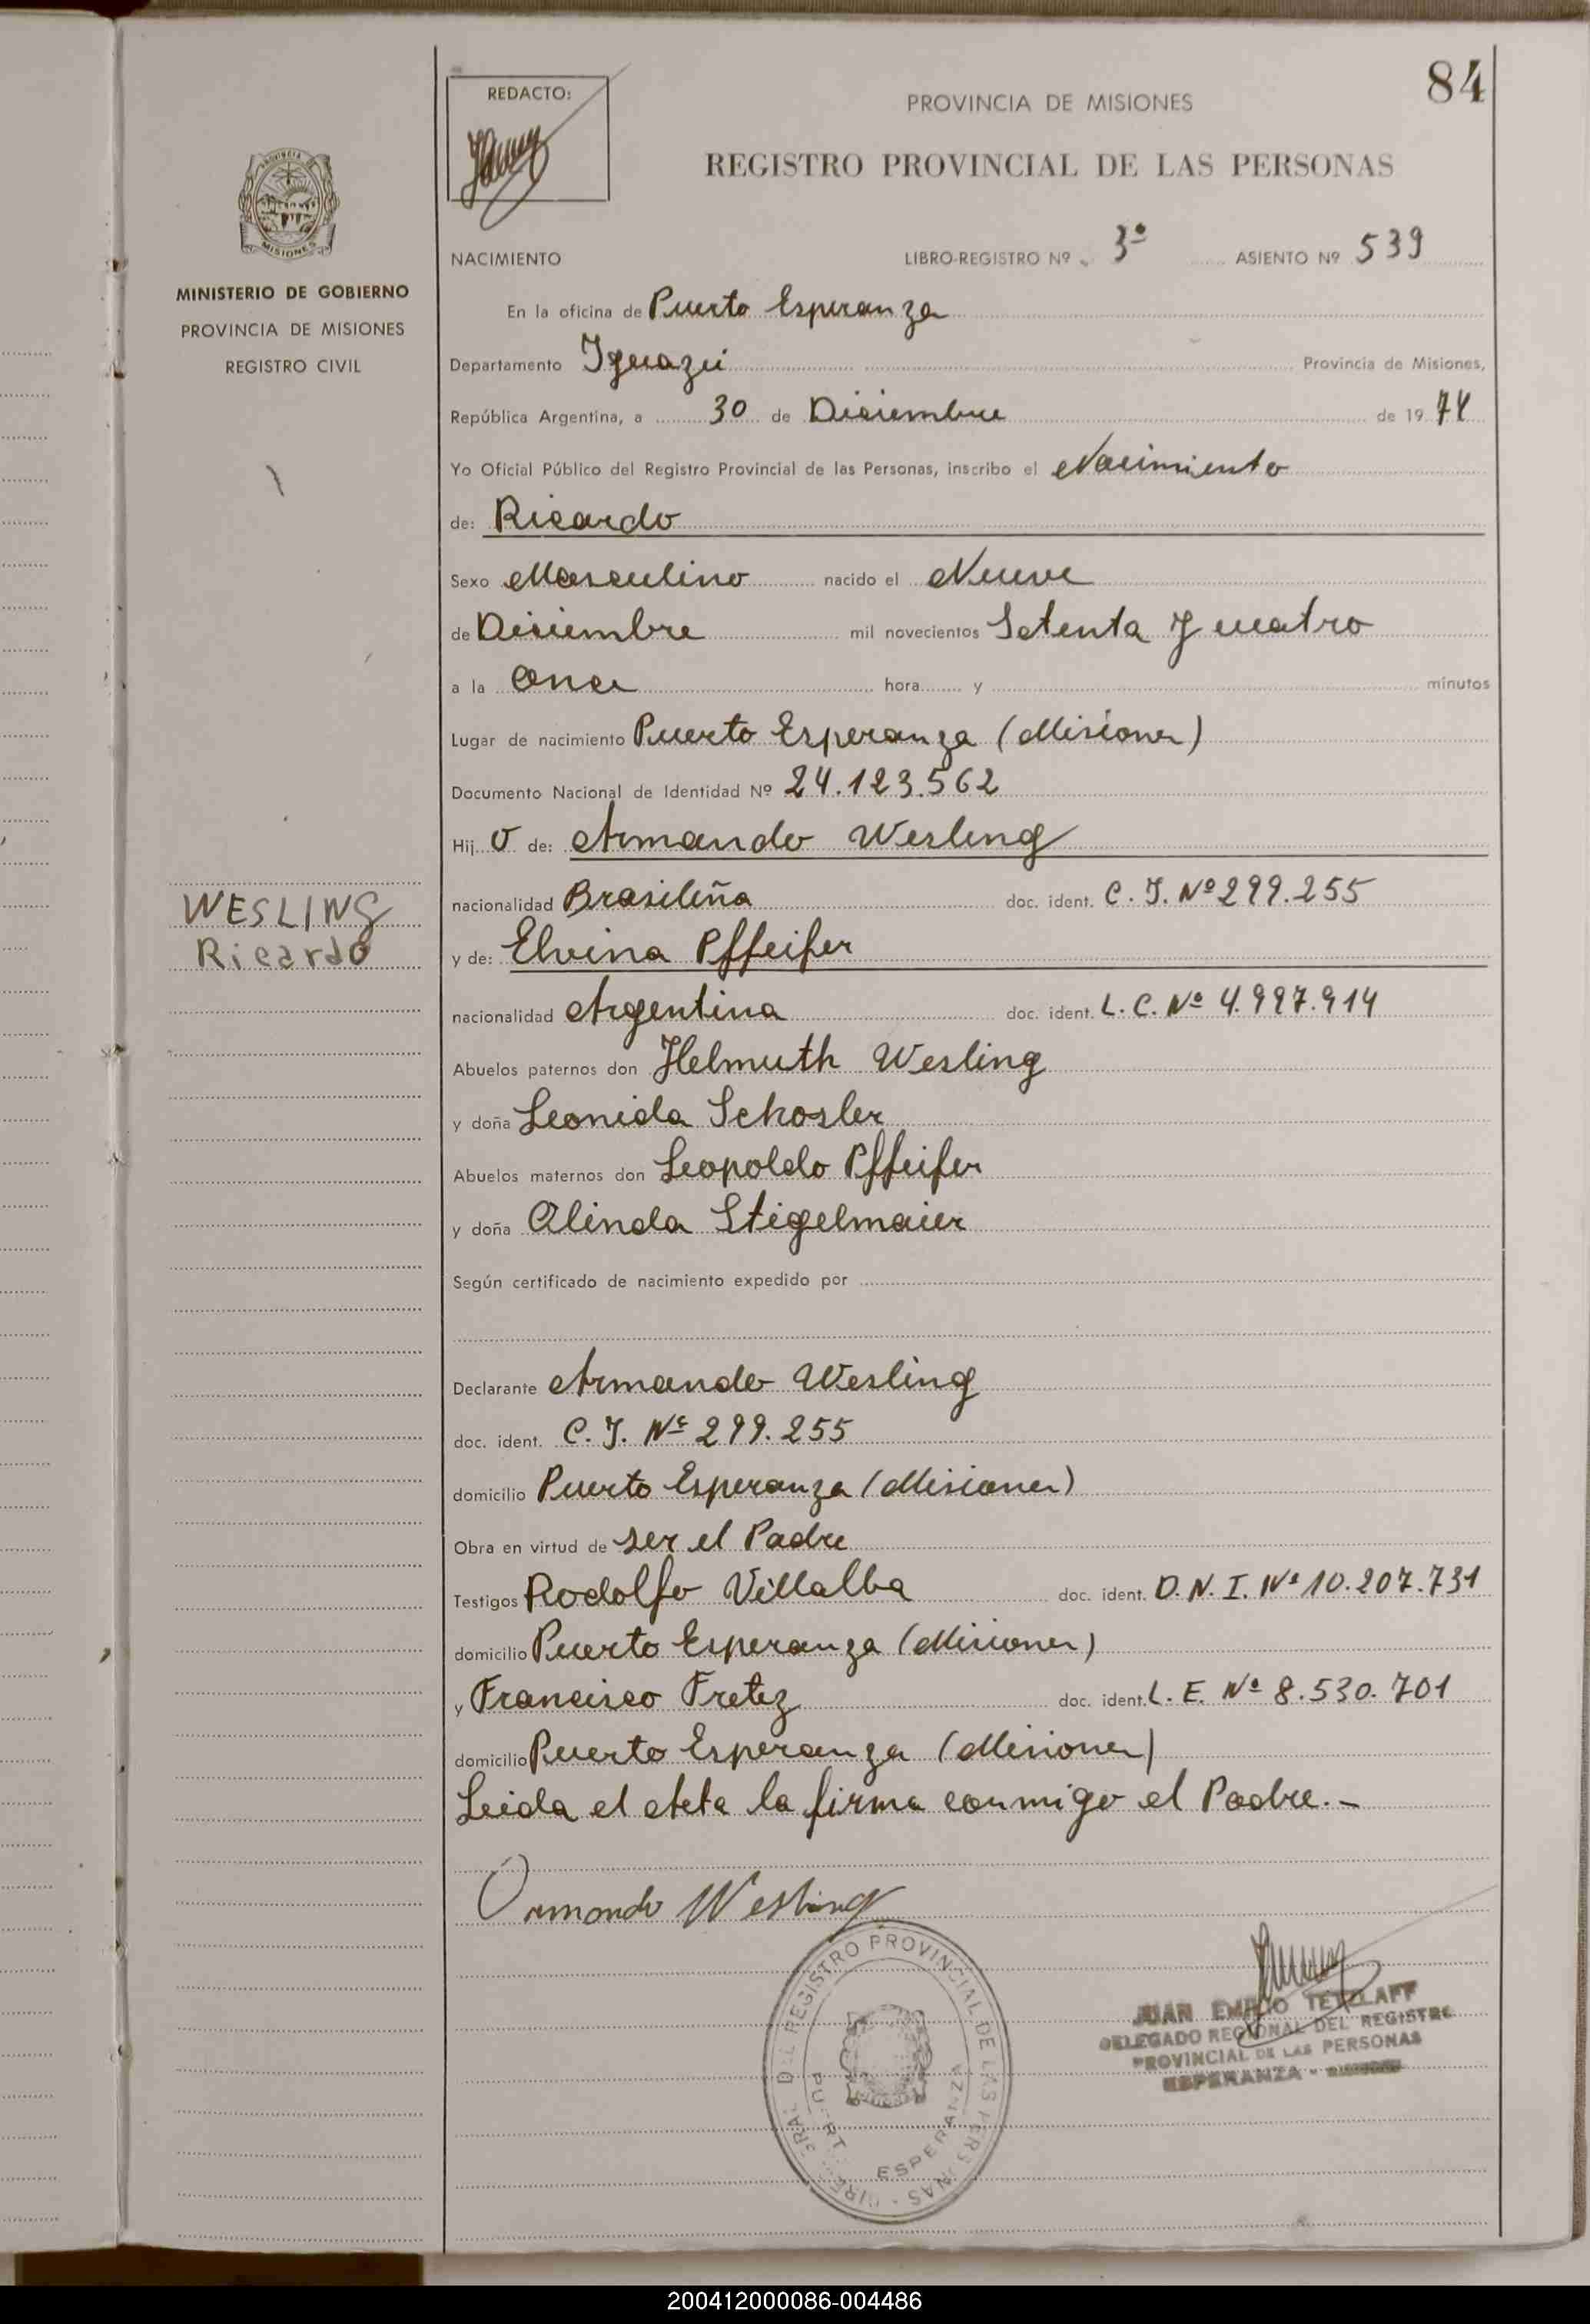 84
REDACTO:
PROVINCIA DE MISIONES
REGISTRO PROVINCIAL DE LAS PERSONAS
PROVINCIA DE
MISIONES
MINISTERIO DE GOBIERNO
PROVINCIA DE MISIONES
REGISTRO CIVIL
NACIMIENTO LIBRO-REGISTRO Nº 3º ASIENTO Nº 539
En la oficina de Puerto Esperanza
Departamento Iguazú Provincia de Misiones,
República Argentina, a 30 de Diciembre de 1974
Yo Oficial Público del Registro Provincial de las Personas, inscribo el Nacimiento
de: Ricardo
Sexo Masculino nacido el Nueve
de Diciembre mil novecientos Setenta y cuatro
a la Once hora y minutos
Lugar de nacimiento Puerto Esperanza (Misiones)
Documento Nacional de Identidad Nº 24.123.562
Hijo de: Armando Wesling
nacionalidad Brasileña doc. ident. C. I. Nº 299.255
WESLING
Ricardo
y de: Elvina Pffeifer
nacionalidad Argentina doc. ident. L. C. Nº 4.997.914
Abuelos paternos don Helmuth Wesling
y doña Leonida Schosler
Abuelos maternos don Leopoldo Pffeifer
y doña Alinda Stigelmaier
Según certificado de nacimiento expedido por
Declarante Armando Wesling
doc. ident. C. I. Nº 299.255
domicilio Puerto Esperanza (Misiones)
Obra en virtud de ser el Padre
Testigos Rodolfo Villalba doc. ident. D. N. I. Nº 10.207.731
domicilio Puerto Esperanza (Misiones)
y Francisco Fretez doc. ident. L. E. Nº 8.530.701
domicilio Puerto Esperanza (Misiones)
Leida el Acta la firma conmigo el Padre.-
Armando Wesling
REGISTRO PROVINCIAL DE LAS PERSONAS
ESPERANZA
JUAN EMILIO TETZLAFF
DELEGADO REGIONAL DEL REGISTRO
PROVINCIAL DE LAS PERSONAS
ESPERANZA -
200412000086-004486